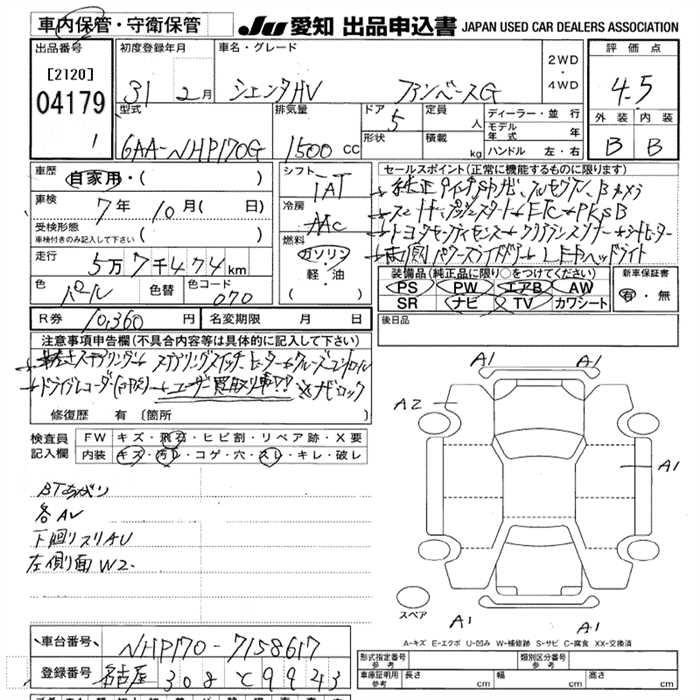 車内保管・守衛保管
JU 愛知 出品申込書 JAPAN USED CAR DEALERS ASSOCIATION
出品番号 初度登録年月 車名・グレード 評価点
[2120]
04179
1
31 2月 シエンタHV ファンベースG
2WD
・
4WD
4.5
型式 排気量 ドア 定員 ディーラー・並行 外装 内装
6AA-NHP170G 1500 cc 5 人
形状 積載 kg
モデル年式 年
ハンドル 左・右
B B
車歴 自家用・( )
車検 7年 10月 ( 日)
受検形態
車検付きのみ記入して下さい ( )
走行 5万7千474km
色 パール 色替 色コード 070
シフト IAT
冷房 AAC
燃料 ガソリン
軽・油
( )
セールスポイント(正常に機能するものに限ります)
純正9インチSDナビ フルセグTV Bカメラ
スマートプッシュスタート ETC PKSB
トヨタセーフティセンス クリアランスソナー シートヒーター
両側パワースライドドア LEDヘッドライト
装備品(純正品に限り○をつけてください) 新車保証書
PS PW エアB AW 有・無
SR ナビ TV カワシート
R券 10,360円 名変期限 月 日
後日品
注意事項申告欄(不具合内容等は具体的に記入して下さい)
ステアリング ステアリングスイッチ ヒーター クルーズコントロール
ドライブレコーダー(コムテック) ユーザー買取り車 ※ナビロック
修復歴 有 [箇所
検査員 FW キズ・飛石・ヒビ割・リペア跡・X要
記入欄 内装 キズ・汚レ・コゲ・穴・スレ・キレ・破レ
BTあがり
各AU
下廻りスリAU
左側面W2
A1 A1
A2
A1
A1 A1
スペア
A-キズ E-エクボ U-凹み W-補修跡 S-サビ C-腐食 XX-交換済
車台番号 NHP170-7158617
登録番号 名古屋 308 と 9943
形式指定番号 参考 類別区分番号 参考
車庫証明用 参考 長さ cm 幅 cm 高さ cm